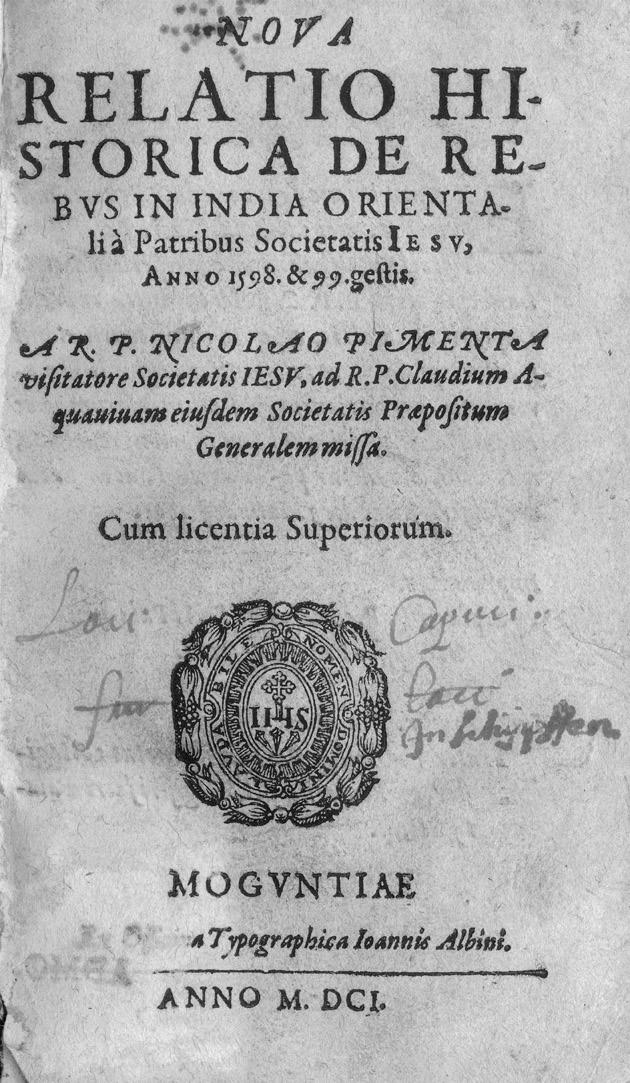 NOVA
RELATIO HI-
STORICA DE RE-
BVS IN INDIA ORIENTA-
li à Patribus Societatis IESV,
ANNO 1598. & 99. gestis.
A R. P. NICOLAO PIMENTA
visitatore Societatis IESV, ad R. P. Claudium A-
quauiuam eiusdem Societatis Præpositum
Generalem missa.
Cum licentia Superiorum.
LAVDABILE NOMEN DOMINI
IHS
MOGVNTIAE
a Typographica Ioannis Albini.
ANNO M. DCI.